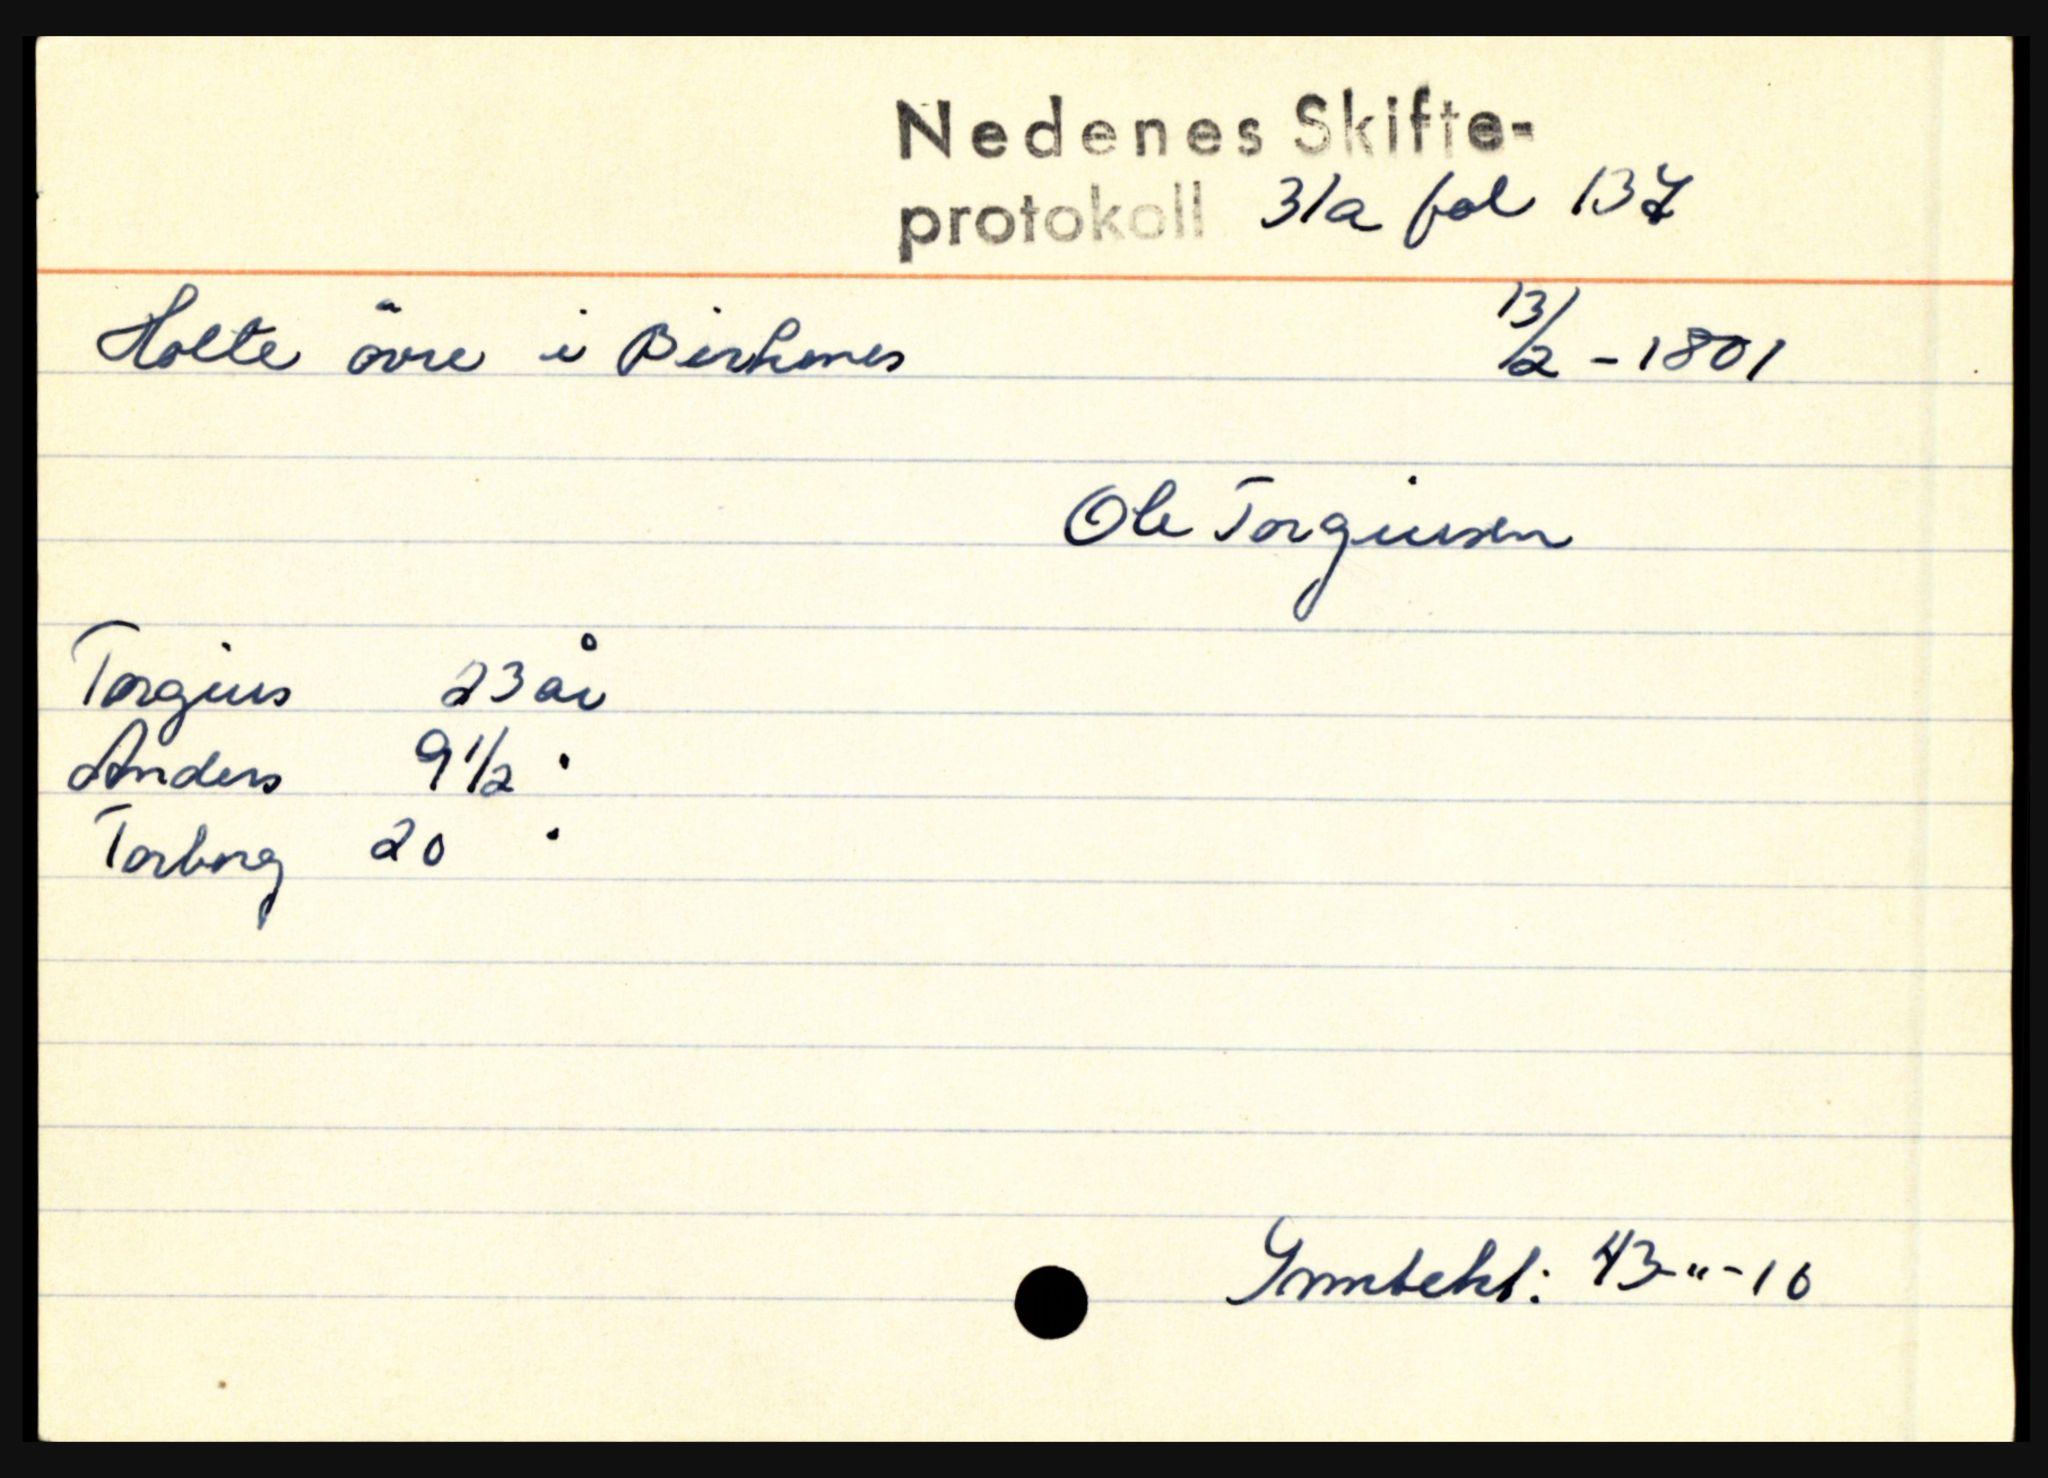 Nedenes Skifte-
protokoll 31a fol 137
Holte övre i Birkenes 13/2 - 1801
Ole Torgiusen
Torgius 23 år
Anders 9 1/2 "
Torborg 20 "
43-"-10